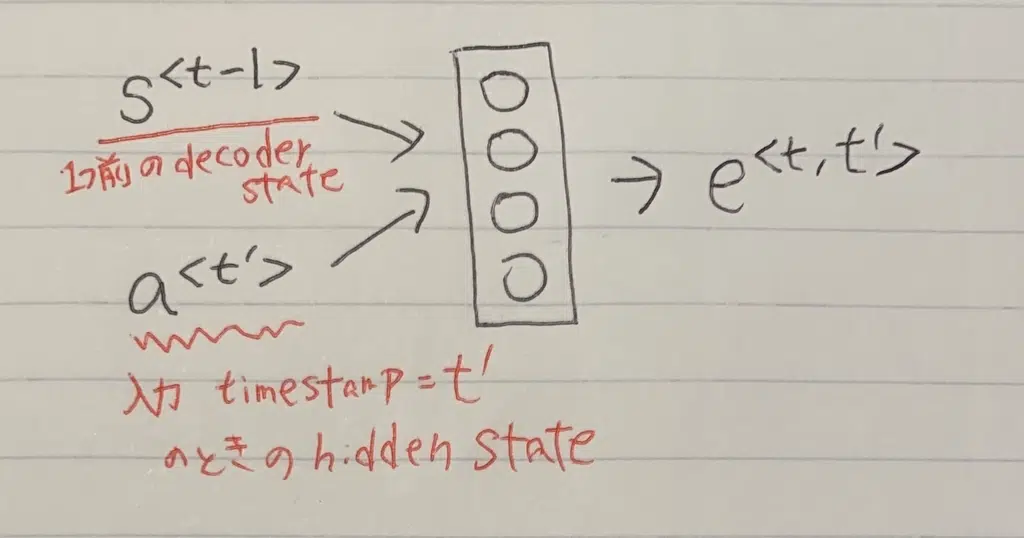 s<t-1>
1つ前のdecoder
state
a<t'>
入力 timestamp=t'
のときのhidden state
e<t,t'>